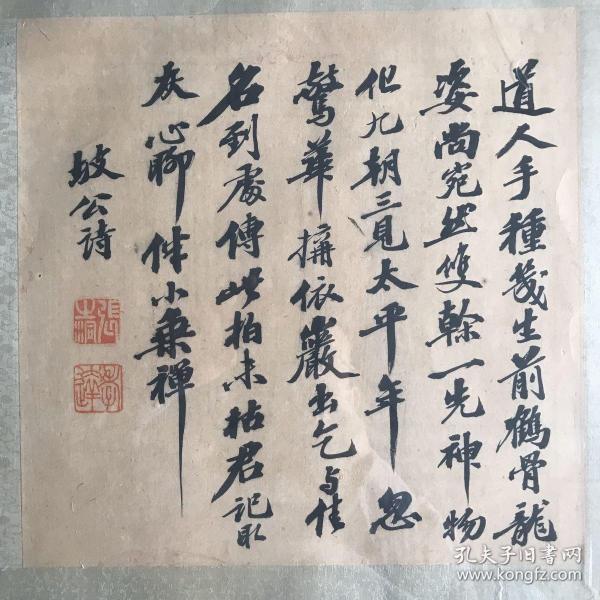 道人手種幾生前鶴骨龍
姿尚宛然雙幹一先神物
化九朝三見太平年忽
驚華構依巖出乞与佳
名到處傳此柏未枯君記取
灰心聊伴小乘禪
坡公詩
張之洞
孝達
孔夫子旧书网
www.kongfz.com